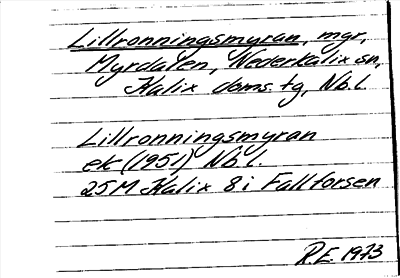 Lillronningsmyran, mgr,
Myrdalen, Nederkalix sn,
Kalix doms. tg, Nb.l.
Lillronningsmyran
ek (1951) Nb.l.
25M Kalix 8i Fallforsen
R.E. 1973